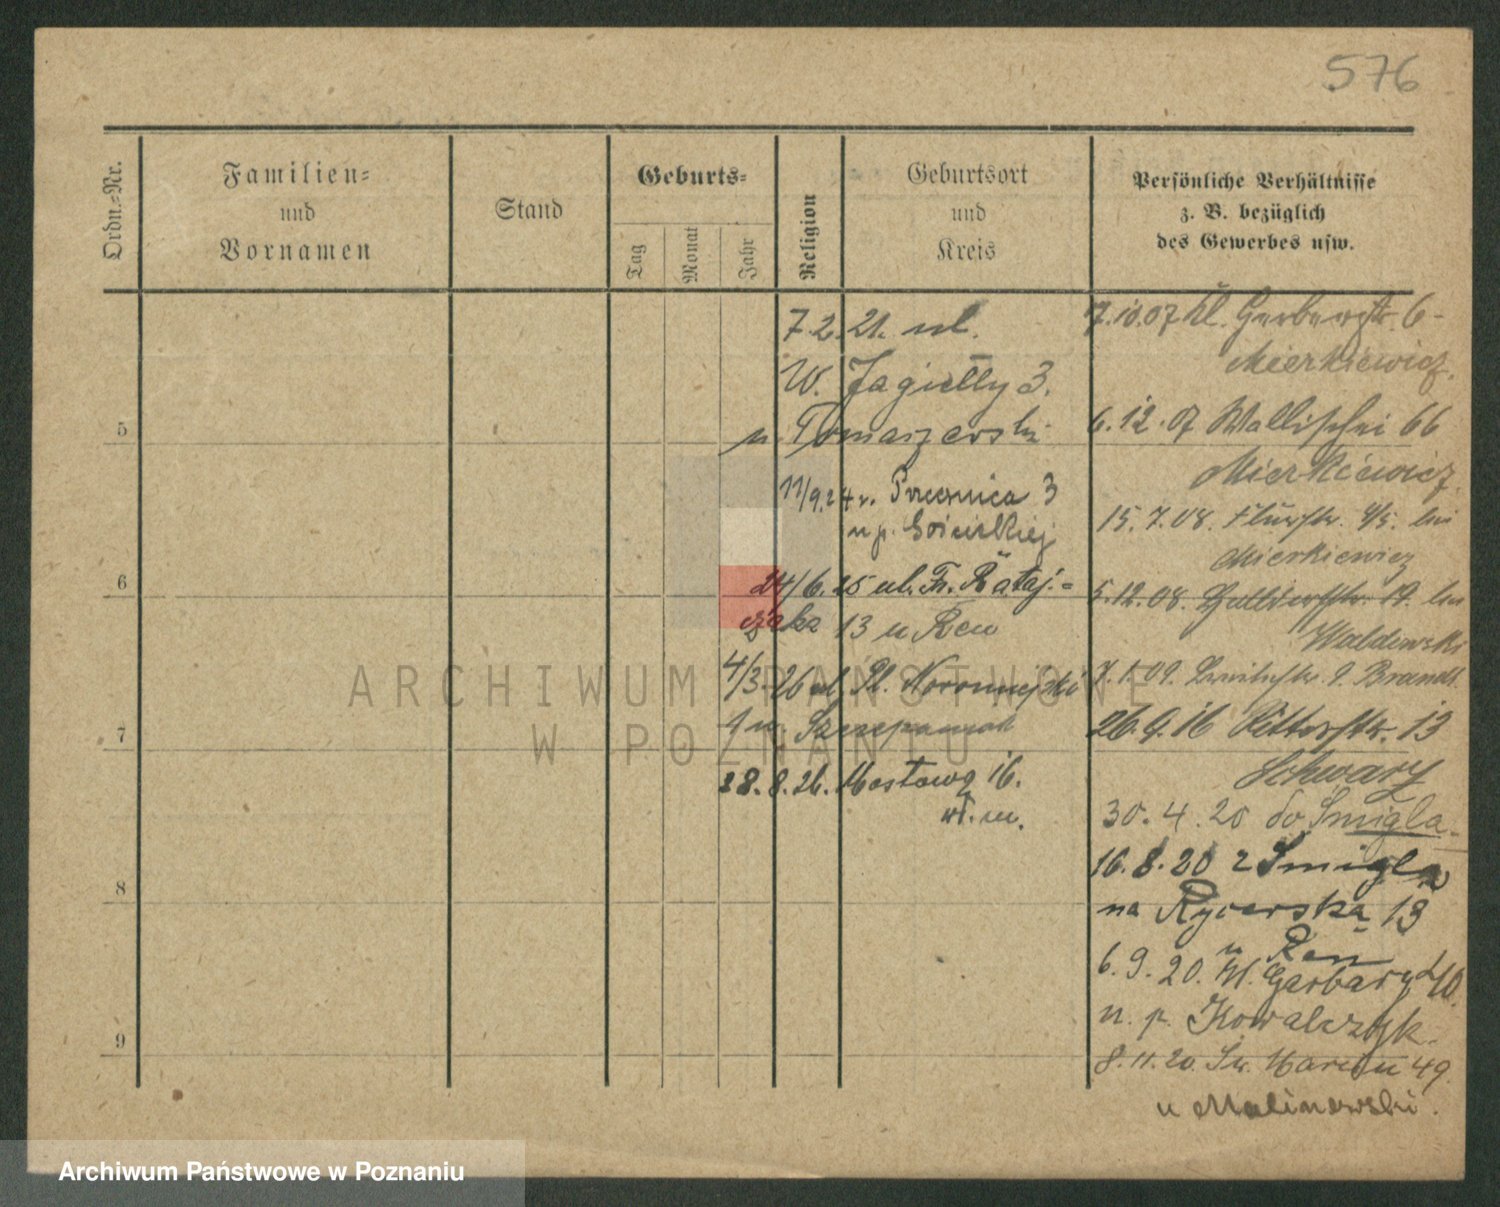 576
Ordn.-Nr.
Familien-
und
Vornamen
Stand
Geburts-
Tag
Monat
Jahr
Religion
Geburtsort
und
Kreis
Persönliche Verhältnisse
z. B. bezüglich
des Gewerbes usw.
5
6
7
8
9
7.2.21. ul.
W. Jagiełły 3.
u Tomaszewski
11/9.24 r. Przecznica 3
u p.
24/6.25 ul. Fr. Rataj-
czaka 13 u Ren
4/3.26 ul. Pl. Nowomiejski
u. Szczepaniak
28.8.26. Mostowa 16.
wł. m.
7.10.07 Kl. Gerberstr. 6
Mierkiewicz.
6.12.07 Wallischei 66
Mierkiewicz.
15.7.08. bei
Mierkiewicz
5.12.08. 19. bei
7.1.09. 9. Brandt.
26.9.16 Ritterstr. 13
Schwarz
30.4.20 do Śmigla
16.8.20 z Śmigla
na Rycerska 13
u Ren
6.9.20. W. Garbary 40.
u. p. Kowalczyk.
8.11.20. Św. Marcin 49.
u Malinowski.
ARCHIWUM PAŃSTWOWE
W POZNANIU
Archiwum Państwowe w Poznaniu